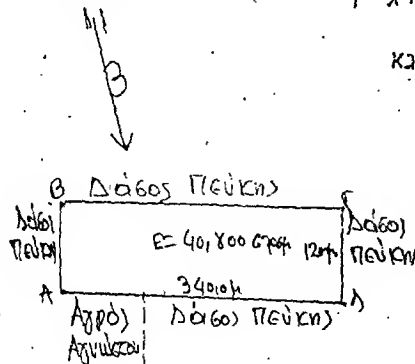 Β
Β Δάσος Πεύκης Γ
Δάσος Πεύκης
Ε= 40,800 στρεμ
120μ
Δάσος Πεύκης
340,0μ
Α
Δ
Αγρός Αγνώστου
Δάσος Πεύκης